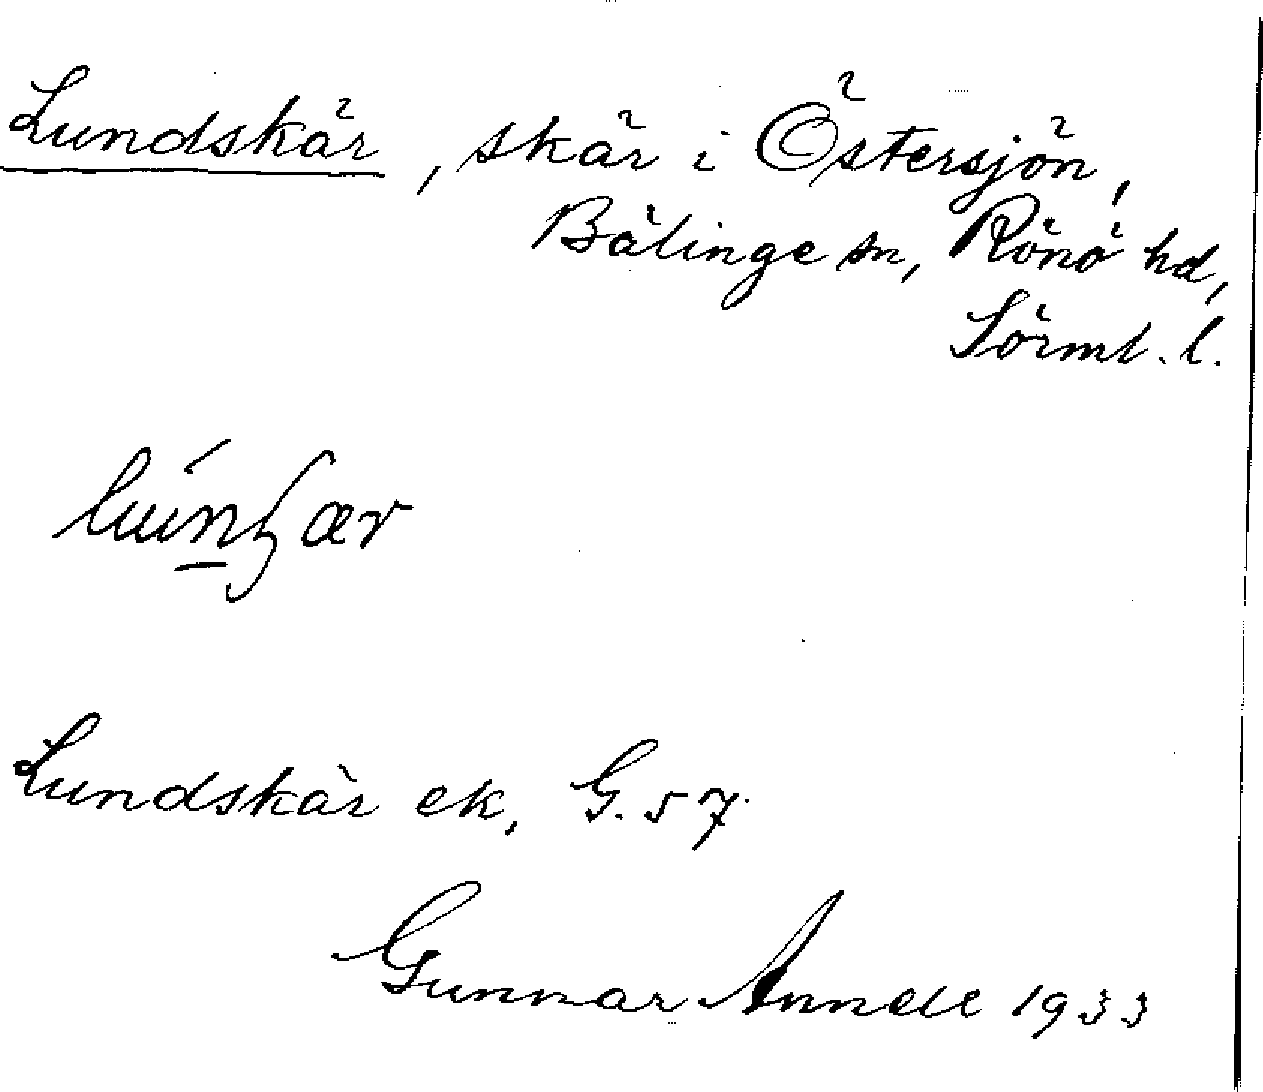 Lundskär, skär i Östersjön,
Bälinge sn, Rönö hd,
Sörml. l.
Lundskär ek, G. 57.
Gunnar Annell 1933